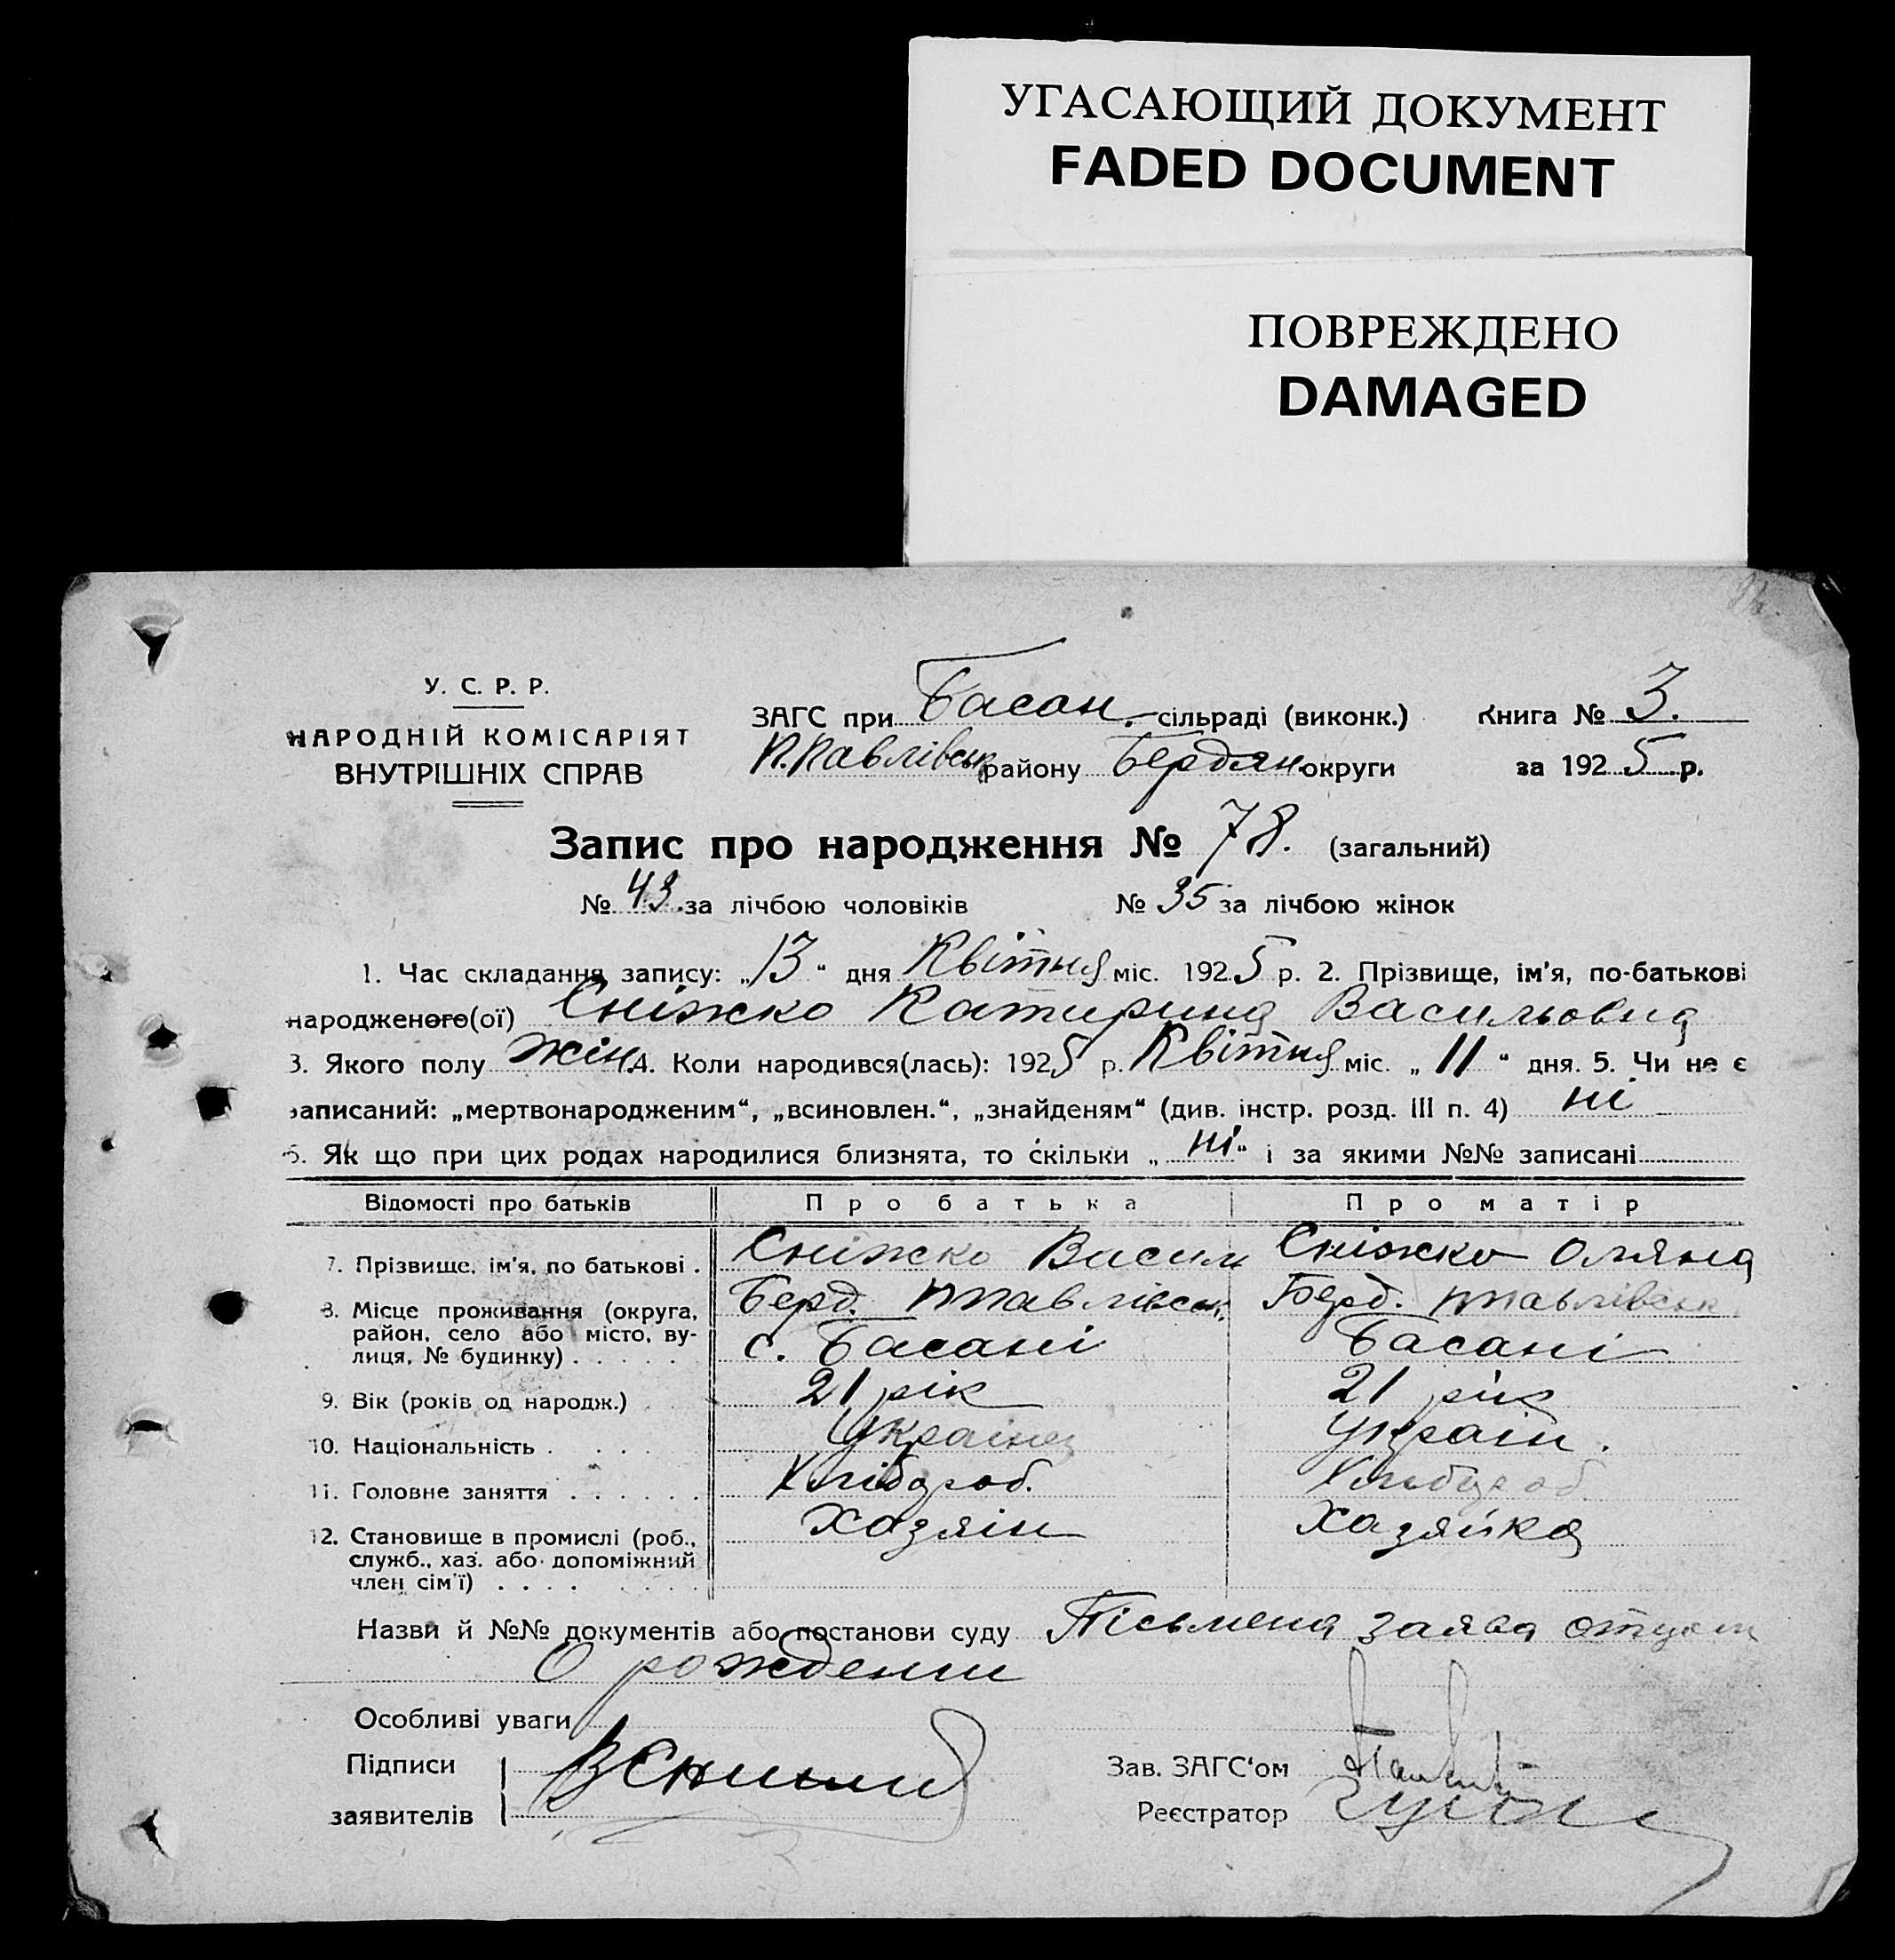 УГАСАЮЩИЙ ДОКУМЕНТ
FADED DOCUMENT
ПОВРЕЖДЕНО
DAMAGED
У. С. Р. Р.
НАРОДНІЙ КОМІСАРІЯТ
ВНУТРІШНІХ СПРАВ
ЗАГС при Басан. сільраді (виконк.) Книга № 3.
П.Павлівськ району Бердян. округи за 1925 р.
Запис про народження № 78. (загальний)
№ 43. за лічбою чоловіків № 35 за лічбою жінок
1. Час складання запису: „13“ дня Квітня міс. 1925 р. 2. Прізвище, ім'я, по-батькові
народженого(ої) Сніжко Катирина Васильовна
3. Якого полу жін. 4. Коли народився(лась): 1925 р. Квітня міс. „11“ дня. 5. Чи не є
записаний: „мертвонародженим“, „всиновлен.“, „знайденям“ (див. інстр. розд. III п. 4) ні
6. Як що при цих родах народилися близнята, то скільки „ні“ і за якими №№ записані
Відомості про батьків Про батька Про матір
7. Прізвище, ім'я, по батькові . Сніжко Васил Сніжко Оляна
8. Місце проживання (округа, Берд. ППавлівськ. Берд. ППавлівськ
район, село або місто, ву- с. Басані Басані
лиця, № будинку) . . . . .
9. Вік (років од народж.) 21 рік 21 рік
10. Національність . . . . Українец Україн.
11. Головне заняття . . . . . . Хлібороб. Хлібороб
12. Становище в промислі (роб., Хазяін Хазяйка
служб., хаз. або допоміжний
член сім'ї) . . . .
Назви й №№ документів або постанови суду Пісьмена заява отцом
О рождении
Особливі уваги
Підписи
заявителів
Зав. ЗАГС'ом
Реєстратор